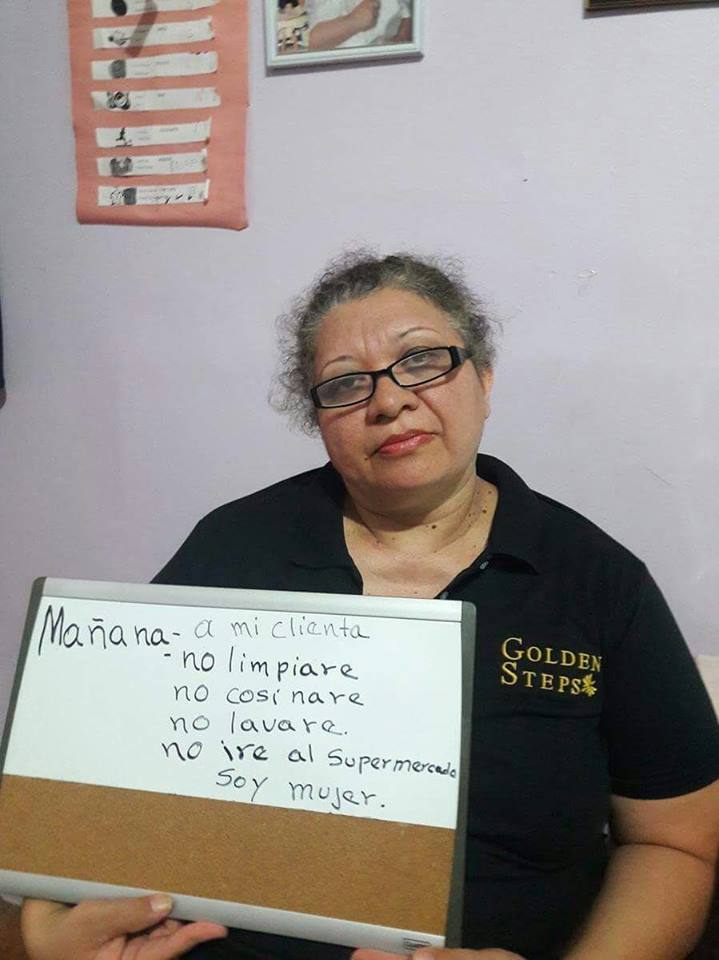 Mañana - a mi clienta
- no limpiare
no cosinare
no lavare.
no ire al supermercado
Soy mujer.
GOLDEN
STEPS